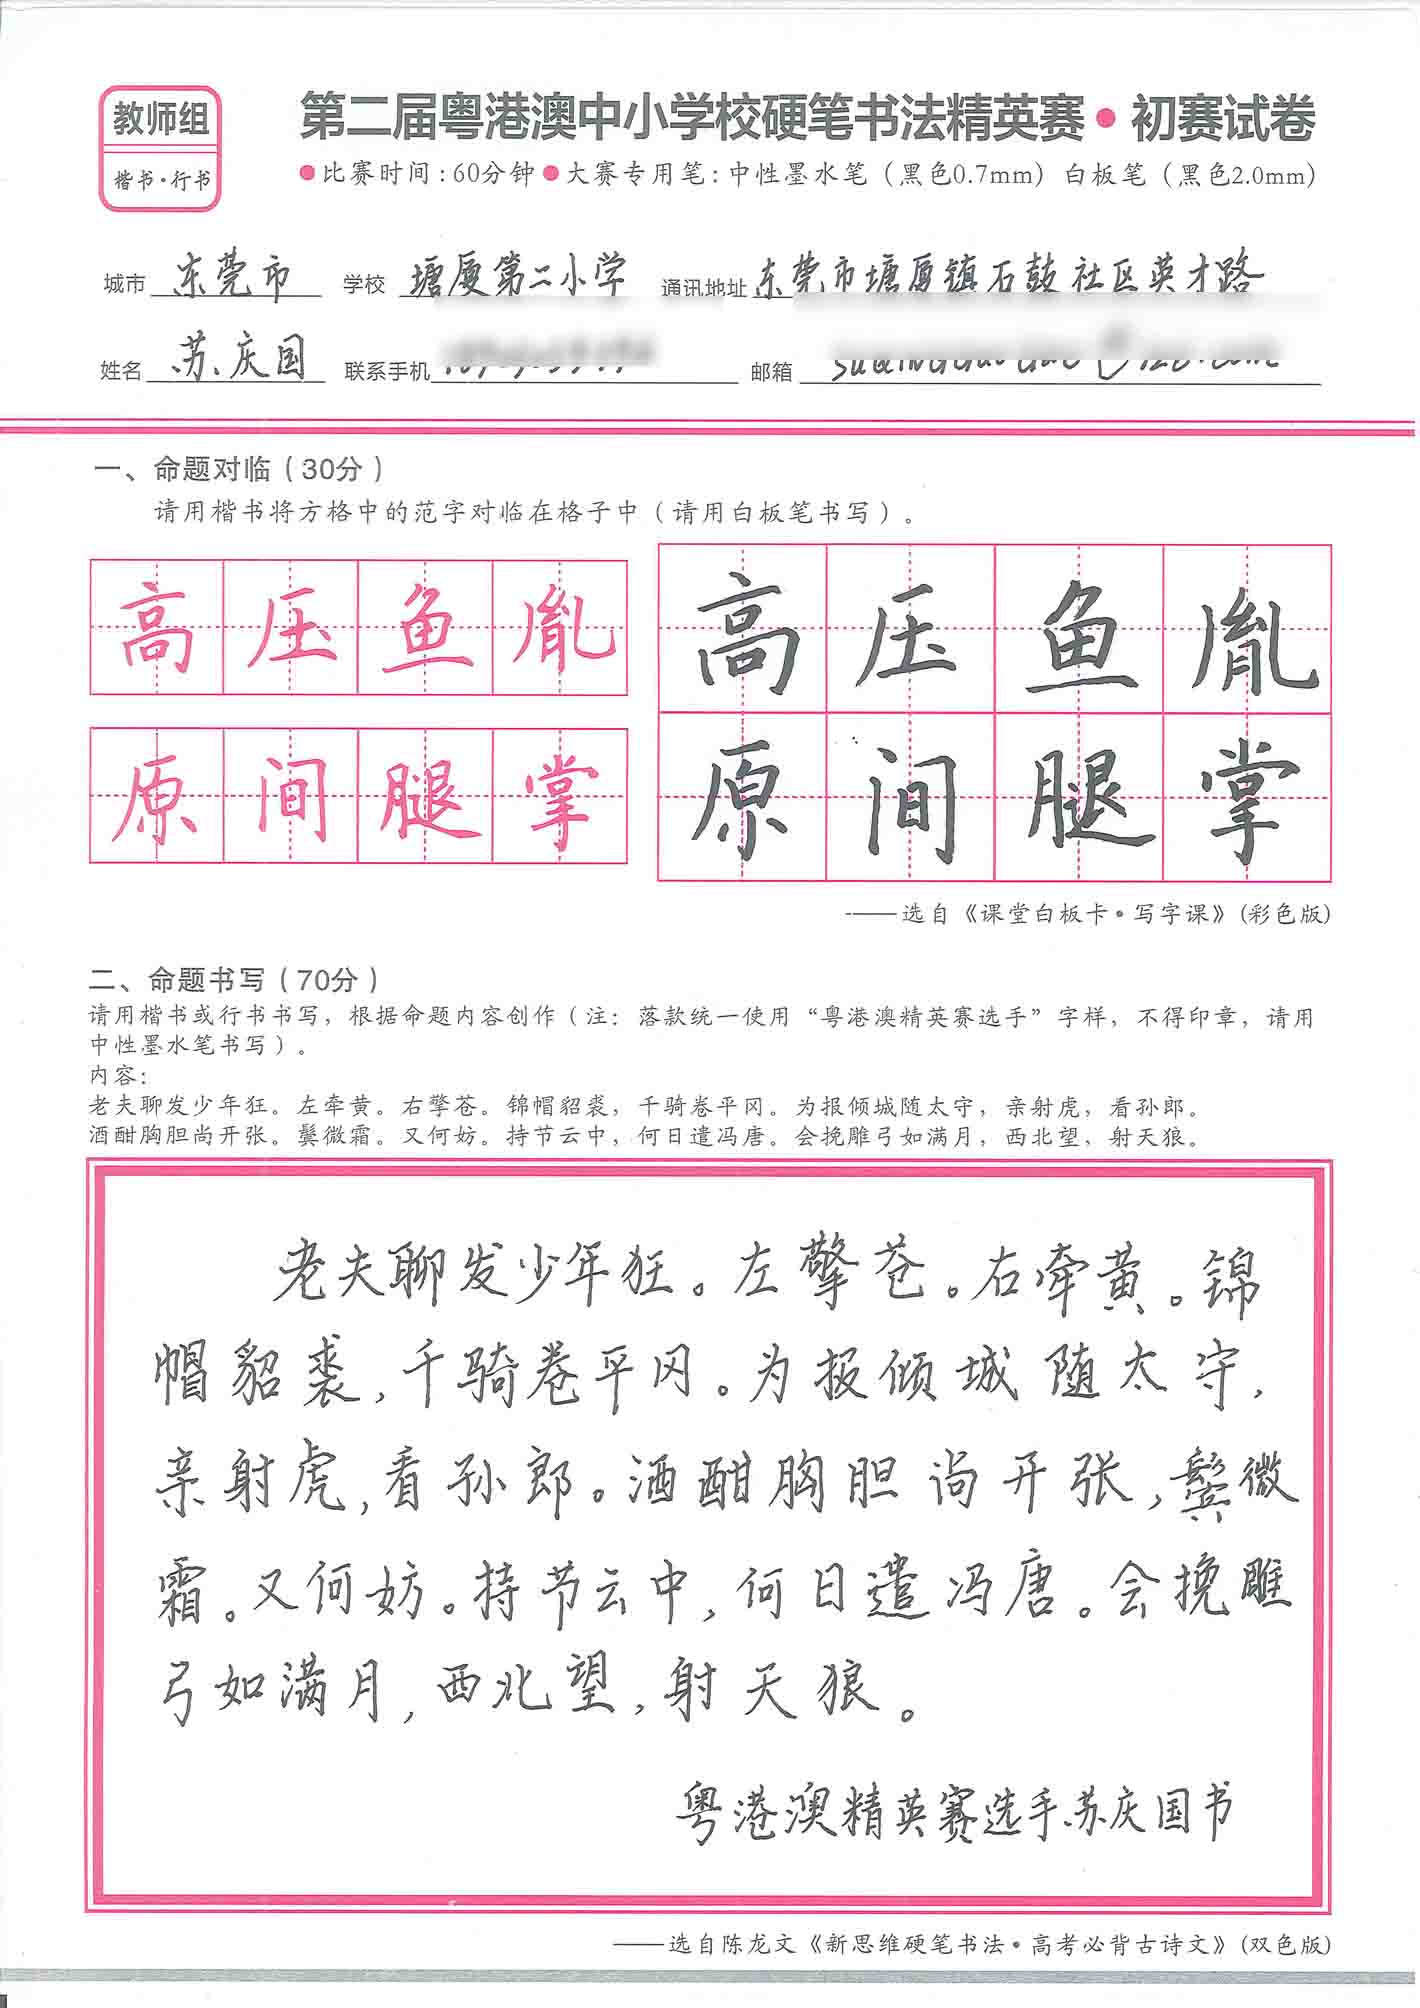 教师组
楷书·行书
第二届粤港澳中小学校硬笔书法精英赛●初赛试卷
●比赛时间:60分钟●大赛专用笔:中性墨水笔（黑色0.7mm）白板笔（黑色2.0mm）
城市 东莞市 学校 塘厦第二小学 通讯地址 东莞市塘厦镇石鼓社区英才路
姓名 苏庆国 联系手机 邮箱
一、命题对临（30分）
请用楷书将方格中的范字对临在格子中（请用白板笔书写）。
高压鱼胤
原间腿掌
高压鱼胤
原间腿掌
——选自《课堂白板卡·写字课》(彩色版)
二、命题书写（70分）
请用楷书或行书书写，根据命题内容创作（注：落款统一使用“粤港澳精英赛选手”字样，不得印章，请用
中性墨水笔书写）。
内容：
老夫聊发少年狂。左牵黄。右擎苍。锦帽貂裘，千骑卷平冈。为报倾城随太守，亲射虎，看孙郎。
酒酣胸胆尚开张。鬓微霜。又何妨。持节云中，何日遣冯唐。会挽雕弓如满月，西北望，射天狼。
老夫聊发少年狂。左擎苍。右牵黄。锦
帽貂裘，千骑卷平冈。为报倾城随太守，
亲射虎，看孙郎。酒酣胸胆尚开张，鬓微
霜。又何妨。持节云中，何日遣冯唐。会挽雕
弓如满月，西北望，射天狼。
粤港澳精英赛选手苏庆国书
——选自陈龙文《新思维硬笔书法·高考必背古诗文》(双色版)